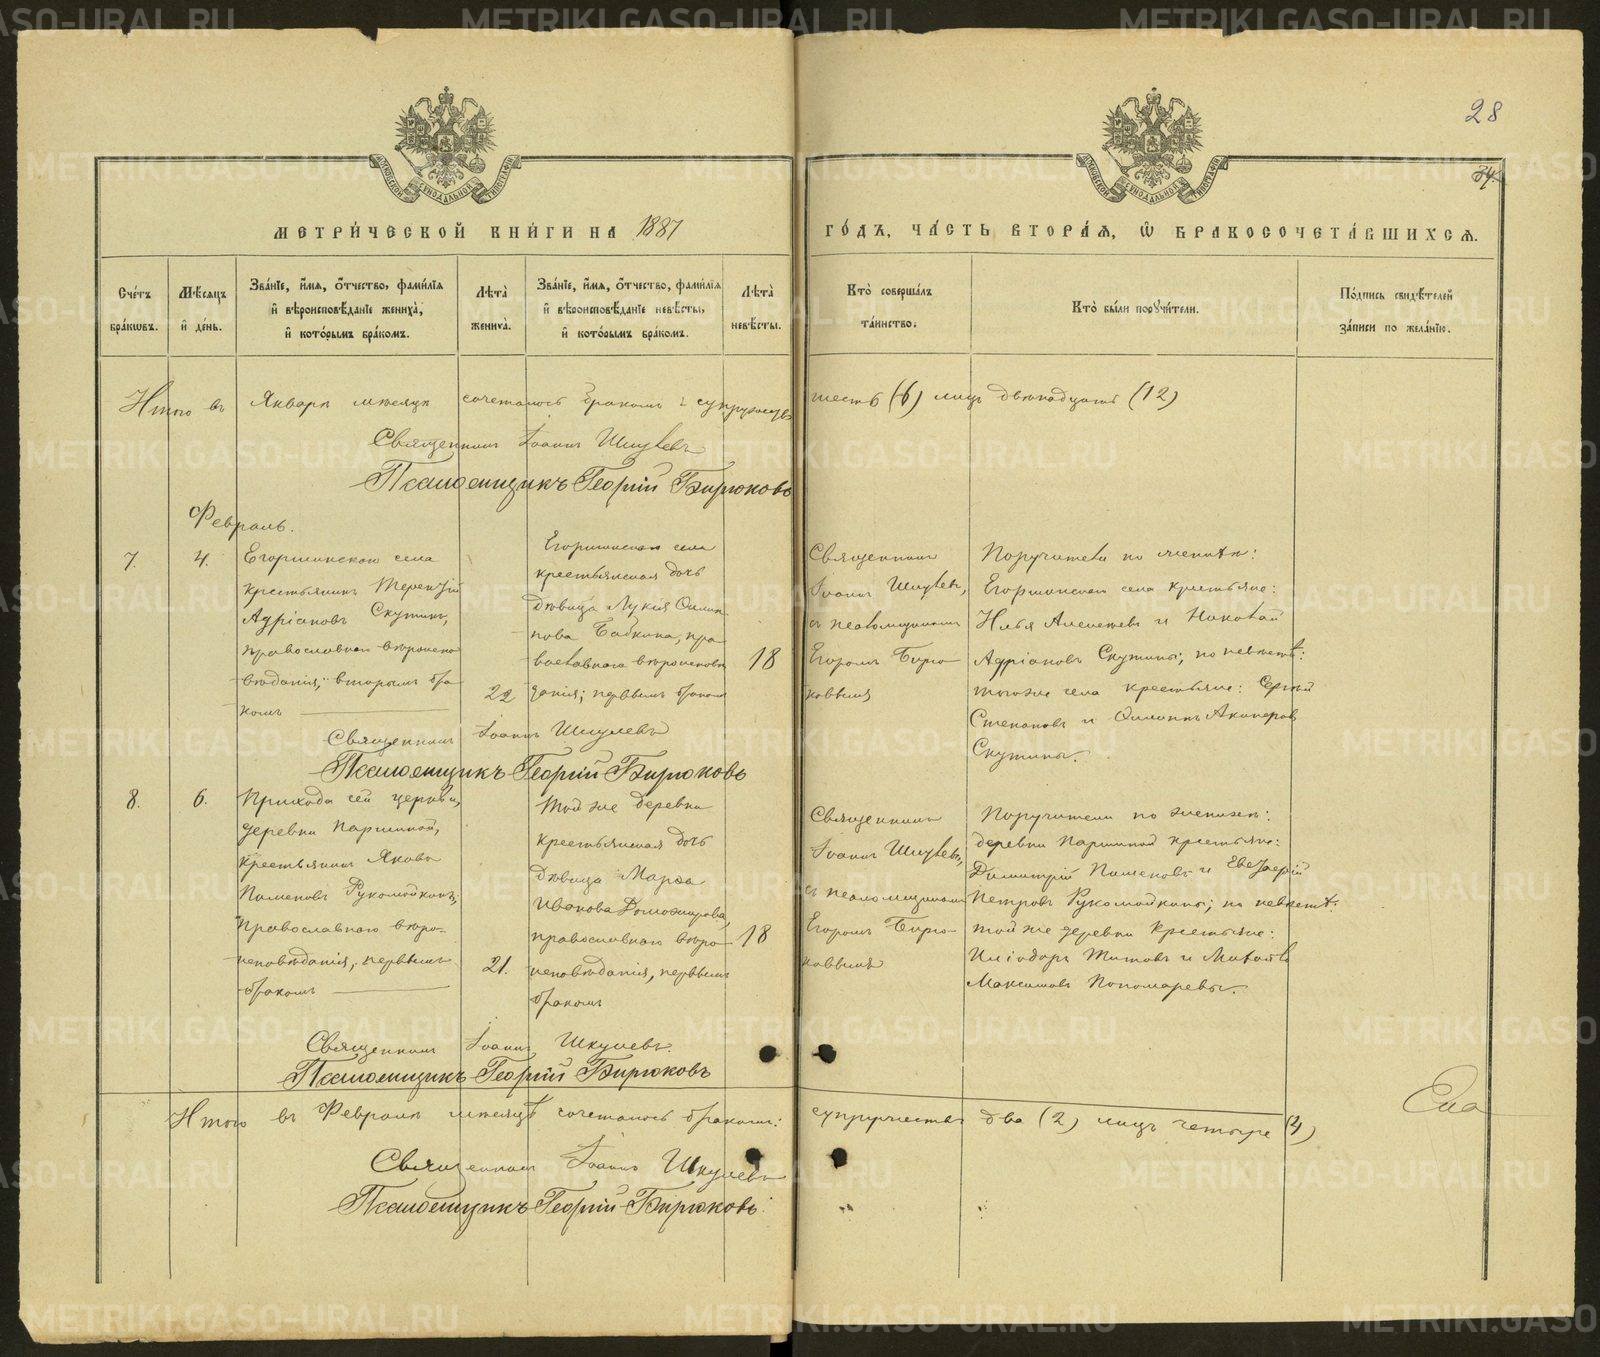 28
34.
МЕТРИ́ЧЕСКОЙ КНИ́ГИ НА 1887
ГО́ДЪ, ЧА́СТЬ ВТОРА́Я, Ѿ БРАКОСОЧЕТА́ВШИХСЯ.
Сче́тъ бра́кωвъ.
Мѣ́сяцъ и҆ де́нь.
Зва́нїе, и҆́мя, ѻ҆́тчество, фами́лїя и҆ вѣроисповѣ́данїе жениха̀, и҆ кото́рымъ бра́комъ.
Лѣта̀ жениха̀.
Зва́нїе, и҆́мя, ѻ҆́тчество, фами́лїя и҆ вѣроисповѣ́данїе невѣ́сты, и҆ кото́рымъ бра́комъ.
Лѣта̀ невѣ́сты.
Кто̀ соверша́лъ та́инство.
Кто̀ бы́ли порꙋчи́тели.
По́дпись свидѣ́телей за́писи по жела́нїю.
Итого въ Январѣ мѣсяцѣ сочеталось бракомъ: супружествъ шесть (6) лицъ двѣнадцать (12)
Священникъ Іоаннъ Шкулевъ
Псаломщикъ Георгій Бирюковъ
Февраль.
7.
4.
Егоршинскаго села
крестьянинъ Терентій
Адріановъ Скутинъ,
православнаго вѣроиспо
вѣданія; вторымъ бра
комъ
22
Егоршинскаго села
крестьянская дочь
дѣвица Лукія Филип
пова Бабкина, пра
вославнаго вѣроисповѣ
данія; первымъ бракомъ
18
Священникъ
Іоаннъ Шкулевъ,
съ псаломщикомъ
Егоромъ Бирю
ковымъ
Поручители по женихѣ:
Егоршинскаго села крестьяне:
Илья Алексѣевъ и Николай
Адріановъ Скутины; по невѣстѣ:
тогоже села крестьяне: Сергій
Степановъ и Филиппъ Акинфовъ
Скутины.
Священникъ Іоаннъ Шкулевъ
Псаломщикъ Георгій Бирюковъ
8.
6.
Прихода сей церкви,
деревни Паршиной,
крестьянинъ Яковъ
Пименовъ Рукомойкинъ,
Православнаго вѣро-
исповѣданія, первымъ
бракомъ
21.
Той же деревни
крестьянская дочь
дѣвица Марѳа
Иванова Доможирова,
православнаго вѣро
исповѣданія, первымъ
бракомъ
18
Священникъ
Іоаннъ Шкулевъ,
съ псаломщикомъ
Егоромъ Бирю-
ковымъ
Поручители по женихѣ:
деревни Паршиной крестьяне:
Димитрій Пименовъ и Елеазарій
Петровъ Рукомойкины; по невѣстѣ:
той же деревни крестьяне:
Иліодоръ Титовъ и Матвѣй
Максимовъ Пономаревы.
Священникъ Іоаннъ Шкулевъ.
Псаломщикъ Георгій Бирюковъ
Итого въ Февралѣ мѣсяцѣ сочеталось бракомъ: супружествъ два (2) лицъ четыре (4)
Священникъ Іоаннъ Шкулевъ
Псаломщикъ Георгій Бирюковъ.
METRIKI.GASO-URAL.RU